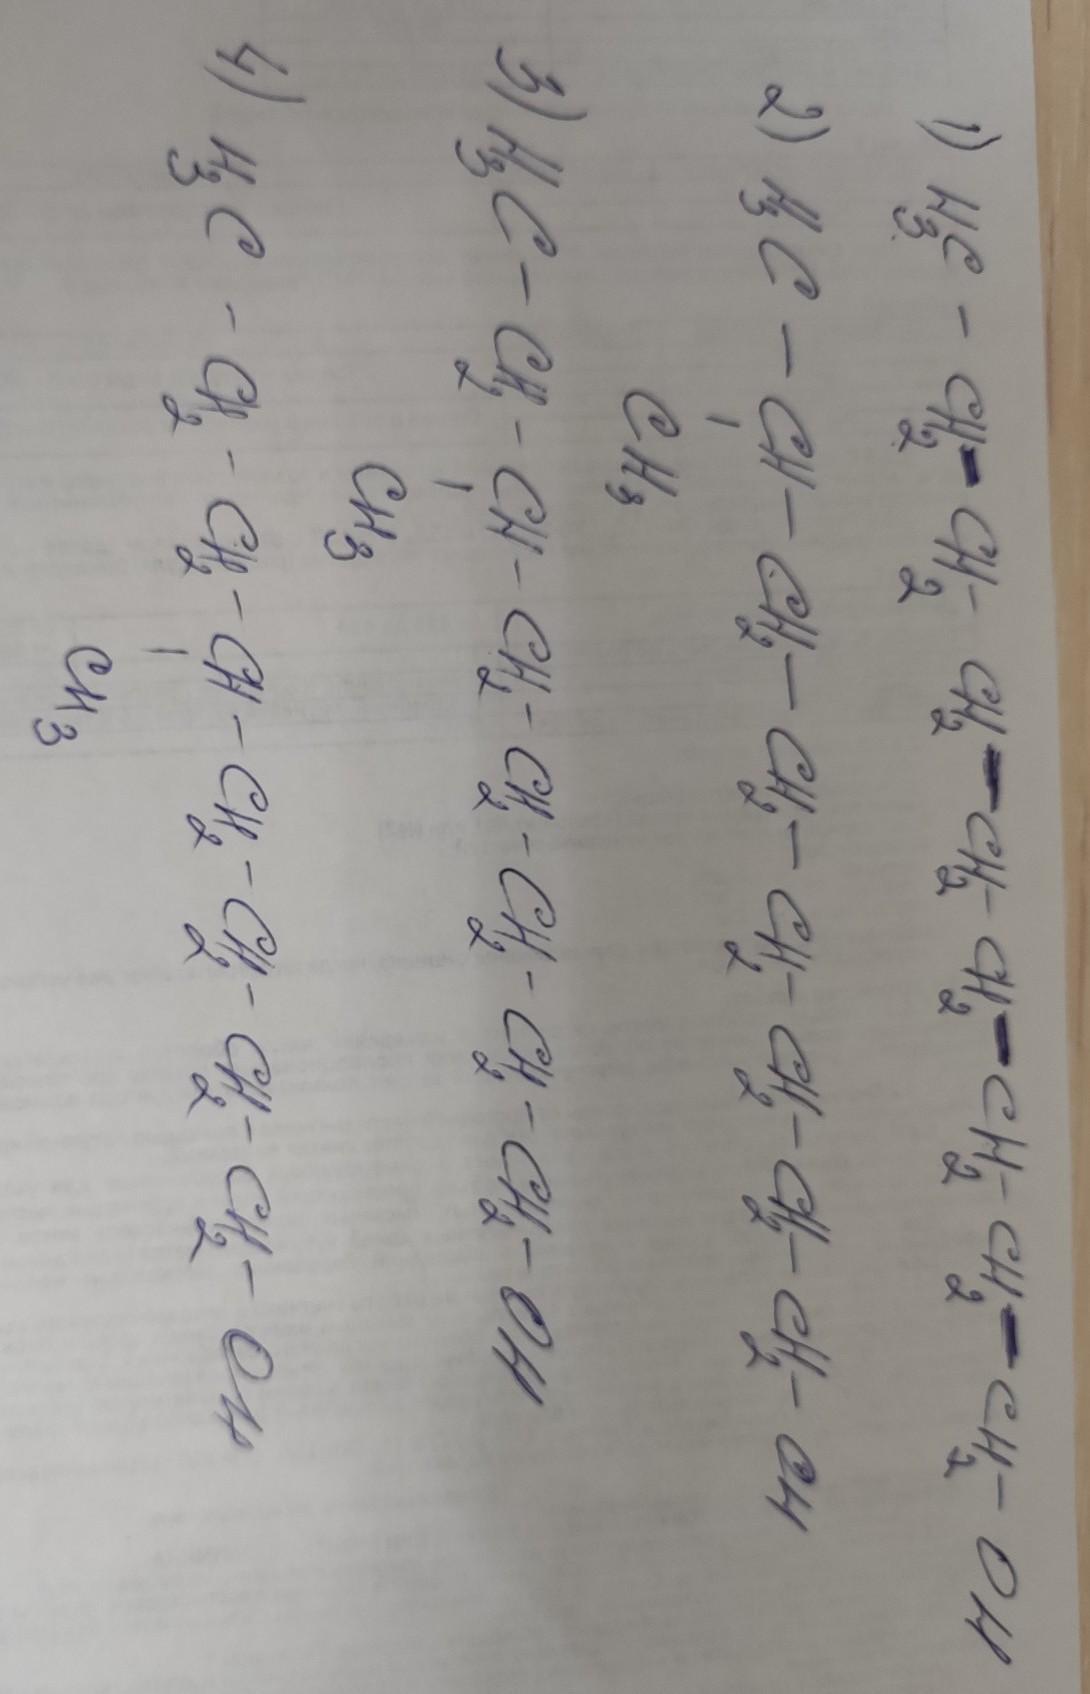 1) H₃C - CH₂ - CH₂ - CH₂ - CH₂ - CH₂ - CH₂ - CH₂ - CH₂ - OH
2) H₃C - CH - CH₂ - CH₂ - CH₂ - CH₂ - CH₂ - CH₂ - OH
|
CH₃
3) H₃C - CH₂ - CH - CH₂ - CH₂ - CH₂ - CH₂ - CH₂ - OH
|
CH₃
4) H₃C - CH₂ - CH₂ - CH - CH₂ - CH₂ - CH₂ - CH₂ - OH
|
CH₃